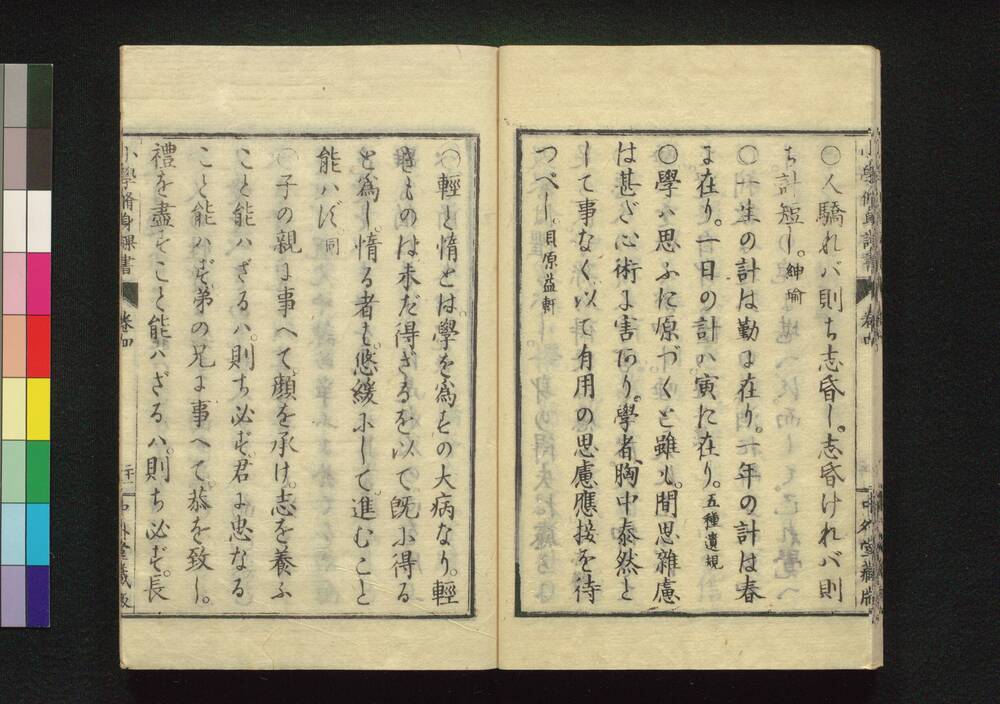 ○人驕れバ則ち志昏し。志昏けれバ則
ち計短し。紳瑜
○一生の計は勤に在り。一年の計は春
に在り。一日の計ハ寅に在り。五種遺規
○學ハ思ふに原づくと雖も。間思雜慮
は甚だ心術に害あり。學者、胸中泰然と
して事なく以て有用の思慮應接を待
つべし。貝原益軒
小學脩身課書 卷四 中外堂藏版
○輕と惰とは。學を爲すの大病なり。輕
きものは未だ得ざるを以て既に得る
と爲し。惰る者も。悠緩にして進むこと
能ハず。同
○子の親に事へて。顔を承け。志を養ふ
こと能ハざるハ。則ち必ず。君に忠なる
こと能ハず。弟の兄に事へて。恭を致し。
禮を盡すこと能ハざるハ。則ち必ず。長
小學脩身課書 卷四 二十一 中外堂藏版